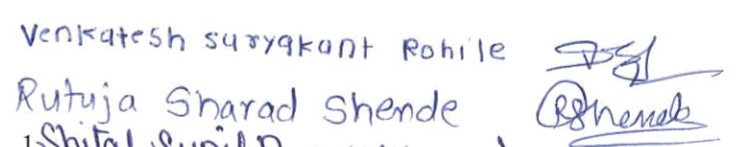 Venkatesh suryakant Rohile
Rutuja Sharad Shende RShende